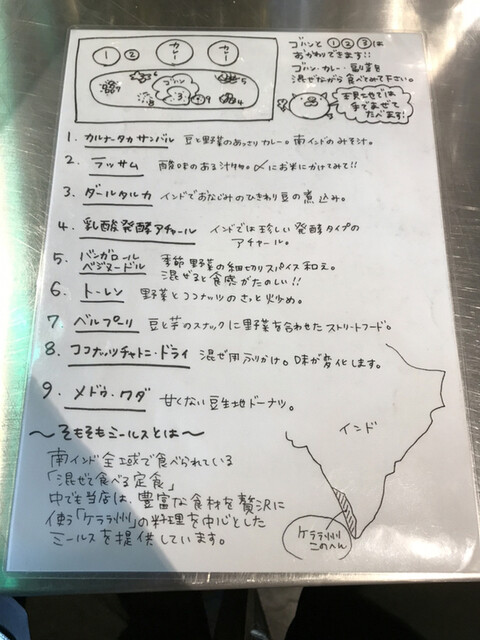 ① ② カレー カレー
ゴハン
7 5
8 3 9 4
ゴハンと①②③は
おかわりできます!!
ゴハン・カレー・副菜を
混ぜながら食べとめて下さい。
手でまぜて
たべます!
1. カルナータカサンバル 豆と野菜のあっさりカレー。南インドのみそ汁。
2. ラッサム 酸味のある汁物。〆にお米にかけてみて!!
3. ダールタルカ インドでおなじみのひきわり豆の煮込み。
4. 乳酸発酵アチャール インドでは珍しい発酵タイプの
アチャール。
5. バンガロール 季節野菜の細切りスパイス和え。
ベジヌードル 混ぜると食感がたのしい!!
6. トーレン 野菜とココナッツのさっと炒め。
7. ベルプーリ 豆と芋のスナックに野菜を合わせたストリートフード。
8. ココナッツチャトニ・ドライ 混ぜ用ふりかけ。味が変化します。
9. メドゥ・ワダ 甘くない豆生地ドーナツ。
〜そもそもミールスとは〜
南インド全域で食べられている
「混ぜて食べる定食」
中でも当店は、豊富な食材を贅沢に
使う「ケララ州」の料理を中心とした
ミールスを提供しています。
インド
ケララ州
このへん